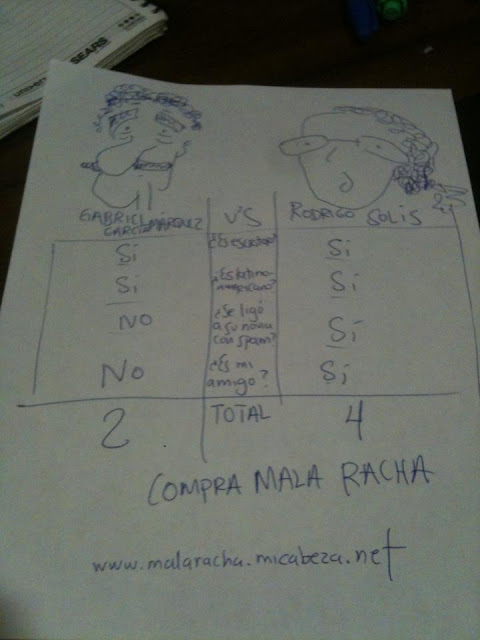 SEARS
GABRIEL
GARCIA MÁRQUEZ
V'S
RODRIGO SOLIS
Si
¿Es escritor?
Sí
Si
¿Es latino-
americano?
Sí
NO
¿Se ligó
a su novia
con spam?
Sí
No
¿Es mi
amigo?
Sí
2
TOTAL
4
COMPRA MALA RACHA
www.malaracha.micabeza.net